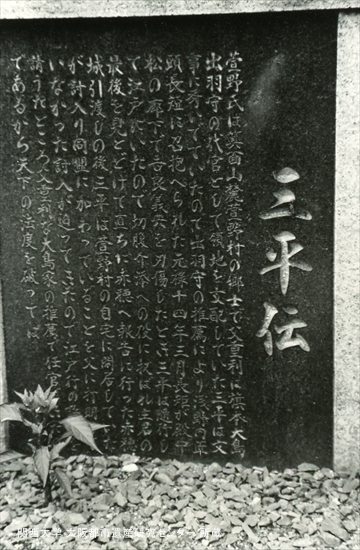 三平伝
萱野氏は箕面山麓萱野村の郷士で父重利は旗本大島
出羽守の代官として領地を支配していた三平は文
事に秀いでていたので出羽守の推薦により浅野内匠
頭長矩に召抱へられた元禄十四年三月長矩が殿中
松の廊下で吉良義央を刃傷したとき三平は随行し
て江戸にいたので切腹介添への役に択ばれ主君の
最後を見とどけて直ちに赤穂へ報告に行った赤穂
城引渡しの後三平は萱野村の自宅に閉居していた
が討入り同盟に加わっていることを父に打明けて
いなかった討入が迫ってきたので江戸行の
請うたところ父重利は大島家の推薦で任官
であるから天下の法度を破っては
関西大学 大阪都市遺産研究センター所蔵